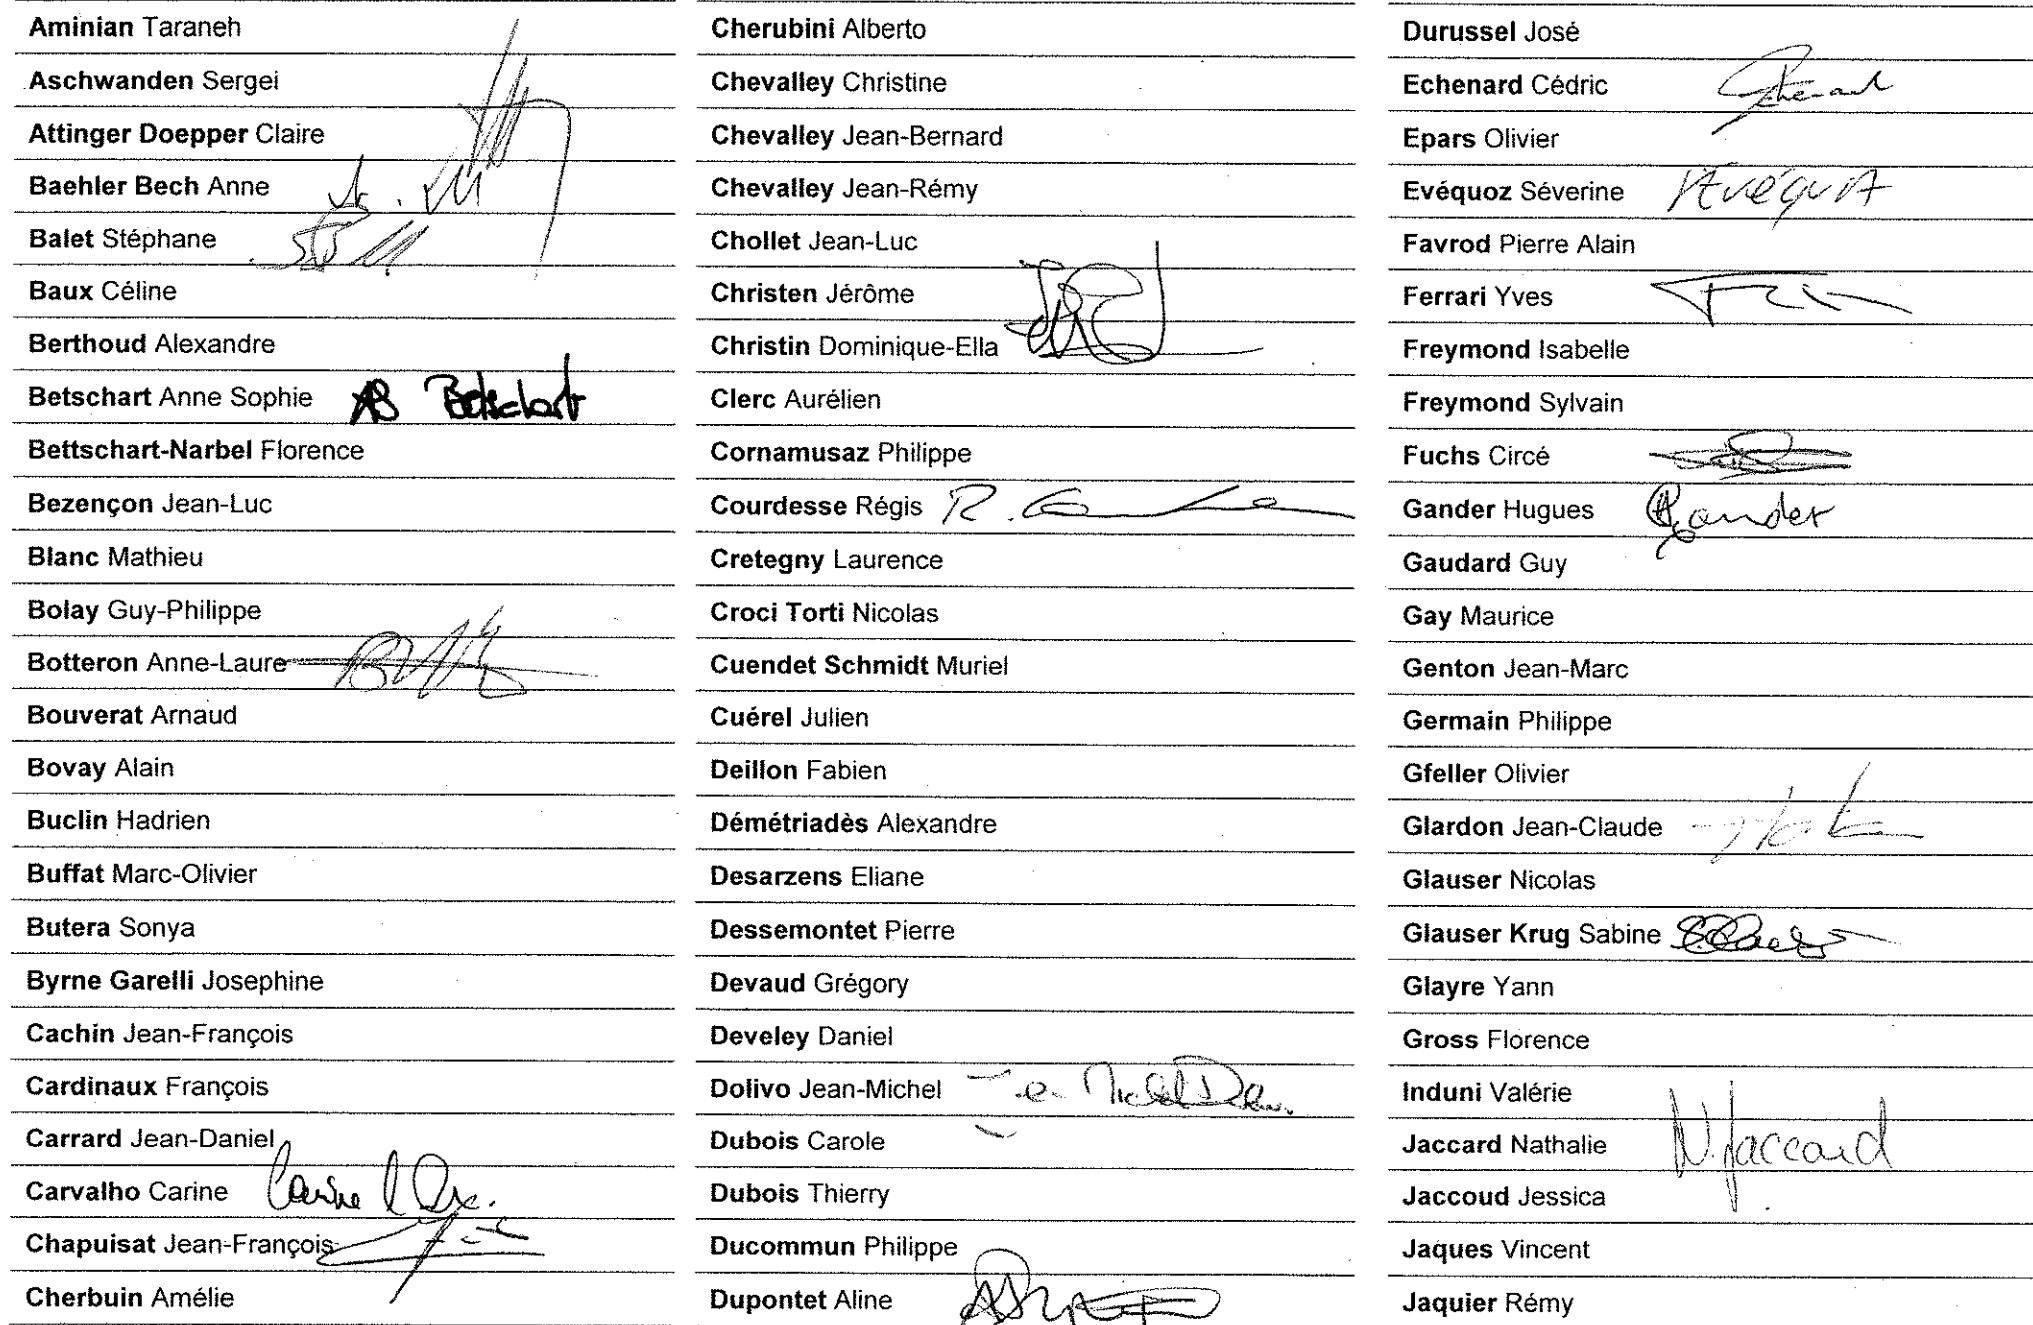 Aminian Taraneh
Aschwanden Sergei
Attinger Doepper Claire
Baehler Bech Anne
Balet Stéphane
Baux Céline
Berthoud Alexandre
Betschart Anne Sophie AS Betschart
Bettschart-Narbel Florence
Bezençon Jean-Luc
Blanc Mathieu
Bolay Guy-Philippe
Botteron Anne-Laure
Bouverat Arnaud
Bovay Alain
Buclin Hadrien
Buffat Marc-Olivier
Butera Sonya
Byrne Garelli Josephine
Cachin Jean-François
Cardinaux François
Carrard Jean-Daniel
Carvalho Carine Carine
Chapuisat Jean-François
Cherbuin Amélie
Cherubini Alberto
Chevalley Christine
Chevalley Jean-Bernard
Chevalley Jean-Rémy
Chollet Jean-Luc
Christen Jérôme
Christin Dominique-Ella
Clerc Aurélien
Cornamusaz Philippe
Courdesse Régis R.
Cretegny Laurence
Croci Torti Nicolas
Cuendet Schmidt Muriel
Cuérel Julien
Deillon Fabien
Démétriadès Alexandre
Desarzens Eliane
Dessemontet Pierre
Devaud Grégory
Develey Daniel
Dolivo Jean-Michel
Dubois Carole
Dubois Thierry
Ducommun Philippe
Dupontet Aline
Durussel José
Echenard Cédric
Epars Olivier
Evéquoz Séverine
Favrod Pierre Alain
Ferrari Yves
Freymond Isabelle
Freymond Sylvain
Fuchs Circé
Gander Hugues Gander
Gaudard Guy
Gay Maurice
Genton Jean-Marc
Germain Philippe
Gfeller Olivier
Glardon Jean-Claude
Glauser Nicolas
Glauser Krug Sabine
Glayre Yann
Gross Florence
Induni Valérie
Jaccard Nathalie N. Jaccard
Jaccoud Jessica
Jaques Vincent
Jaquier Rémy